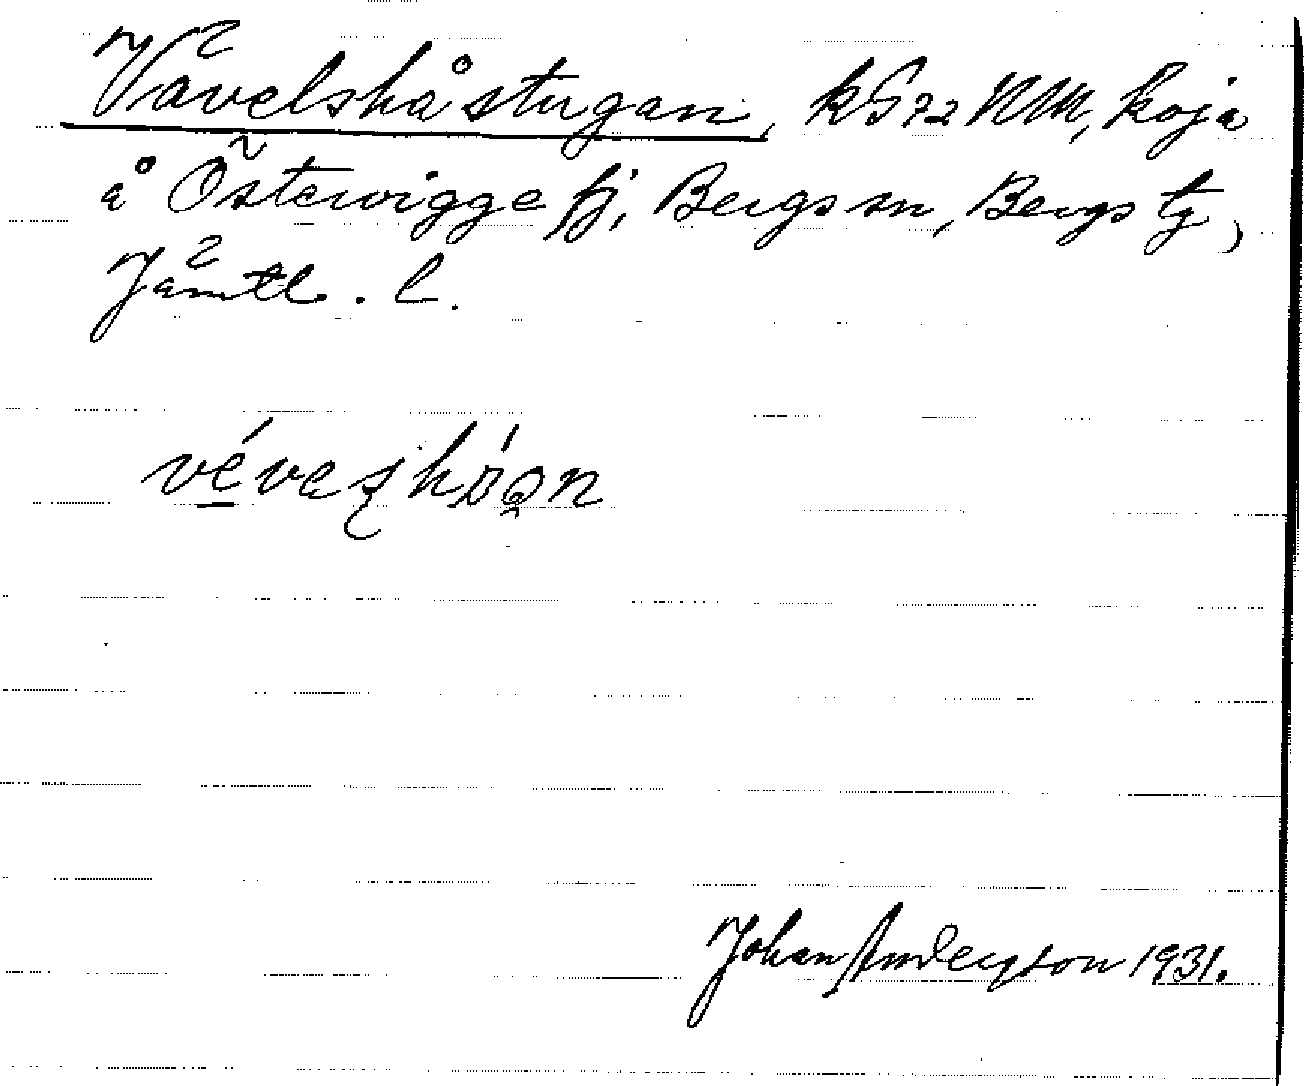 Vävelshåstugan, kS 72 NM, koja
å Österwigge fj, Bergs sn, Bergs tg,
Jämtl. l.
Johan Anderson 1931.